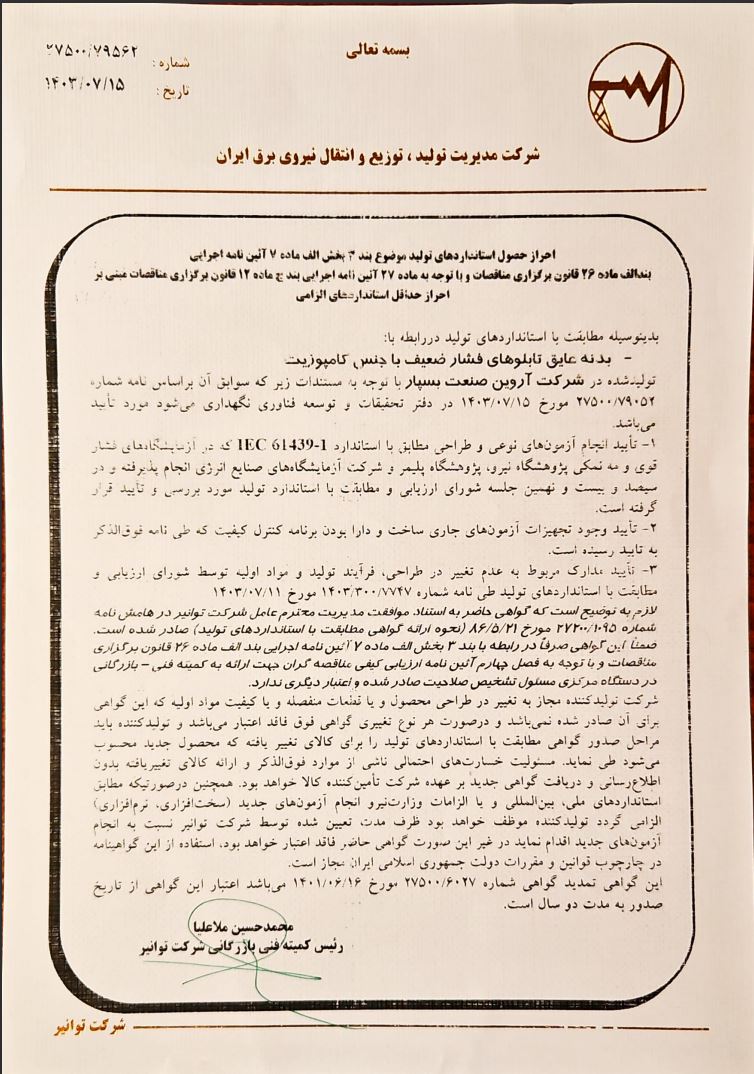 بسمه تعالی
شماره : ۲۷۵۰۰/۷۹۵۶۲
تاریخ : ۱۴۰۳/۰۷/۱۵
شرکت مدیریت تولید ، توزیع و انتقال نیروی برق ایران
احراز حصول استانداردهای تولید موضوع بند ۳ بخش الف ماده ۷ آئین نامه اجرایی
بندالف ماده ۲۶ قانون برگزاری مناقصات و با توجه به ماده ۲۷ آئین نامه اجرایی بند ج ماده ۱۲ قانون برگزاری مناقصات مبنی بر
احراز حداقل استانداردهای الزامی
بدینوسیله مطابقت با استانداردهای تولید دررابطه با:
- بدنه عایق تابلوهای فشار ضعیف با جنس کامپوزیت
تولیدشده در شرکت آروین صنعت بسپار با توجه به مستندات زیر که سوابق آن براساس نامه شماره
۲۷۵۰۰/۷۹۰۵۲ مورخ ۱۴۰۳/۰۷/۱۵ در دفتر تحقیقات و توسعه فناوری نگهداری می‌شود مورد تأیید
می‌باشد.
۱- تأیید انجام آزمون‌های نوعی و طراحی مطابق با استاندارد IEC 61439-1 که در آزمایشگاه‌های فشار
قوی و مه نمکی پژوهشگاه نیرو، پژوهشگاه پلیمر و شرکت آزمایشگاه‌های صنایع انرژی انجام پذیرفته و در
سیصد و بیست و نهمین جلسه شورای ارزیابی و مطابقت با استاندارد تولید مورد بررسی و تأیید قرار
گرفته است.
۲- تأیید وجود تجهیزات آزمون‌های جاری ساخت و دارا بودن برنامه کنترل کیفیت که طی نامه فوق‌الذکر
به تایید رسیده است.
۳- تأیید مدارک مربوط به عدم تغییر در طراحی، فرآیند تولید و مواد اولیه توسط شورای ارزیابی و
مطابقت با استانداردهای تولید طی نامه شماره ۱۴۰۳/۳۰۰/۷۷۴۷ مورخ ۱۴۰۳/۰۷/۱۱
لازم به توضیح است که گواهی حاضر به استناد موافقت مدیریت محترم عامل شرکت توانیر در هامش نامه
شماره ۲۷۲۰۰/۱۰۹۵ مورخ ۸۶/۵/۲۱ (نحوه ارائه گواهی مطابقت با استانداردهای تولید) صادر شده است.
ضمناً این گواهی صرفاً در رابطه با بند ۳ بخش الف ماده ۷ آئین نامه اجرایی بند الف ماده ۲۶ قانون برگزاری
مناقصات و با توجه به فصل چهارم آئین نامه ارزیابی کیفی مناقصه گران جهت ارائه به کمیته فنی - بازرگانی
در دستگاه مرکزی مسئول تشخیص صلاحیت صادر شده و اعتبار دیگری ندارد.
شرکت تولیدکننده مجاز به تغییر در طراحی محصول و یا قطعات منفصله و یا کیفیت مواد اولیه که این گواهی
برای آن صادر شده نمی‌باشد و درصورت هر نوع تغییری گواهی فوق فاقد اعتبار می‌باشد و تولیدکننده باید
مراحل صدور گواهی مطابقت با استانداردهای تولید را برای کالای تغییر یافته که محصول جدید محسوب
می‌شود طی نماید. مسئولیت خسارت‌های احتمالی ناشی از موارد فوق‌الذکر و ارائه کالای تغییریافته بدون
اطلاع‌رسانی و دریافت گواهی جدید بر عهده شرکت تأمین‌کننده کالا خواهد بود. همچنین درصورتیکه مطابق
استانداردهای ملی، بین‌المللی و یا الزامات وزارت‌نیرو انجام آزمون‌های جدید (سخت‌افزاری، نرم‌افزاری)
الزامی گردد تولیدکننده موظف خواهد بود ظرف مدت، تعیین شده توسط شرکت توانیر نسبت به انجام
آزمون‌های جدید اقدام نماید در غیر این صورت گواهی حاضر فاقد اعتبار خواهد بود، استفاده از این گواهینامه
در چارچوب قوانین و مقررات دولت جمهوری اسلامی ایران مجاز است.
این گواهی تمدید گواهی شماره ۲۷۵۰۰/۶۰۲۷ مورخ ۱۴۰۱/۰۶/۱۶ می‌باشد اعتبار این گواهی از تاریخ
صدور به مدت دو سال است.
محمدحسین ملاعلیا
رئیس کمیته فنی بازرگانی شرکت توانیر
شرکت توانیر